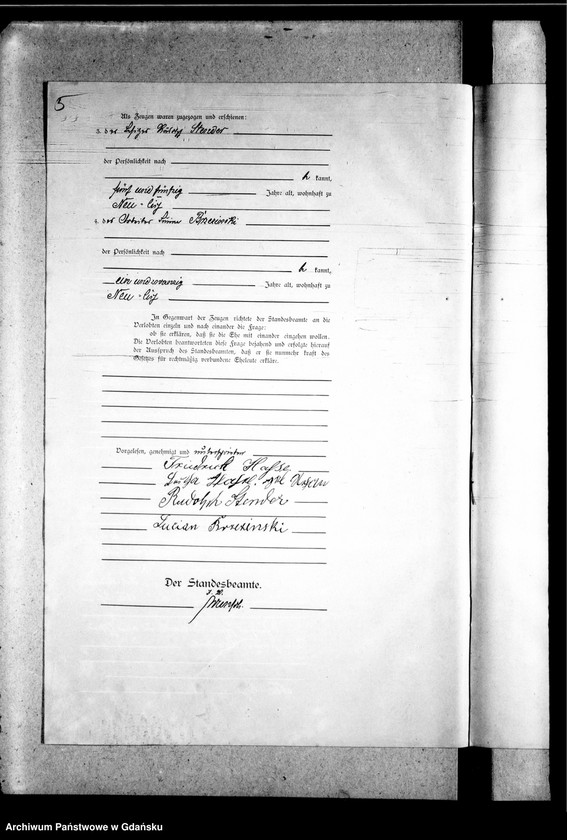 5
Als Zeugen waren zugezogen und erschienen:
3. der Rudolph Stender
der Persönlichkeit nach
kannt,
fünf und fünfzig Jahre alt, wohnhaft zu
Neu-
4. der Arbeiter Brzezinski
der Persönlichkeit nach
kannt,
ein und zwanzig Jahre alt, wohnhaft zu
Neu-
In Gegenwart der Zeugen richtete der Standesbeamte an die
Verlobten einzeln und nach einander die Frage:
ob sie erklären, daß sie die Ehe mit einander eingehen wollen.
Die Verlobten beantworteten diese Frage bejahend und erfolgte hierauf
der Ausspruch des Standesbeamten, daß er sie nunmehr kraft des
Gesetzes für rechtmäßig verbundene Eheleute erkläre.
Vorgelesen, genehmigt und unterschrieben
Friedrich
geb.
Rudolph Stender
Lucian Brzezinski
Der Standesbeamte.
J. V.
Archiwum Państwowe w Gdańsku